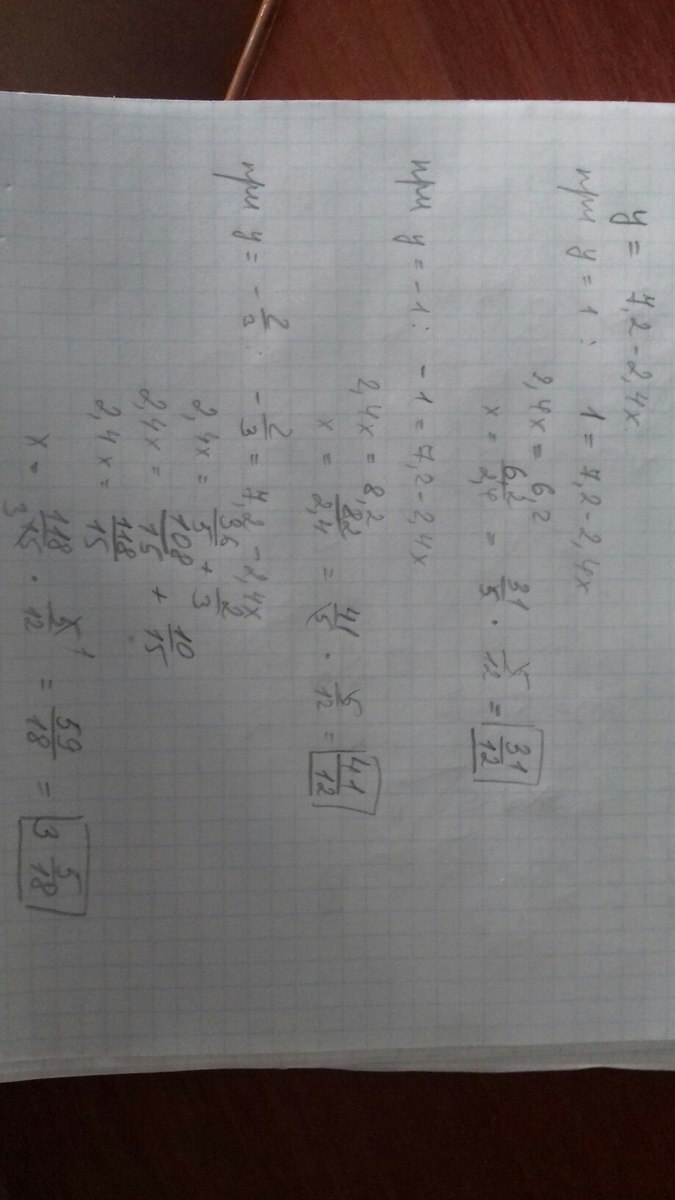 y = 7,2 - 2,4x
при y = 1 : 1 = 7,2 - 2,4x
2,4x = 6,2
x = 6,2/2,4 = 31/5 · 5/12 = 31/12
при y = -1 : -1 = 7,2 - 2,4x
2,4x = 8,2
x = 8,2/2,4 = 41/5 · 5/12 = 41/12
при y = -2/3 : -2/3 = 7,2 - 2,4x
2,4x = 36/5 + 2/3
2,4x = 108/15 + 10/15
2,4x = 118/15
x = 118/15 · 5/12 = 59/18 = 3 5/18